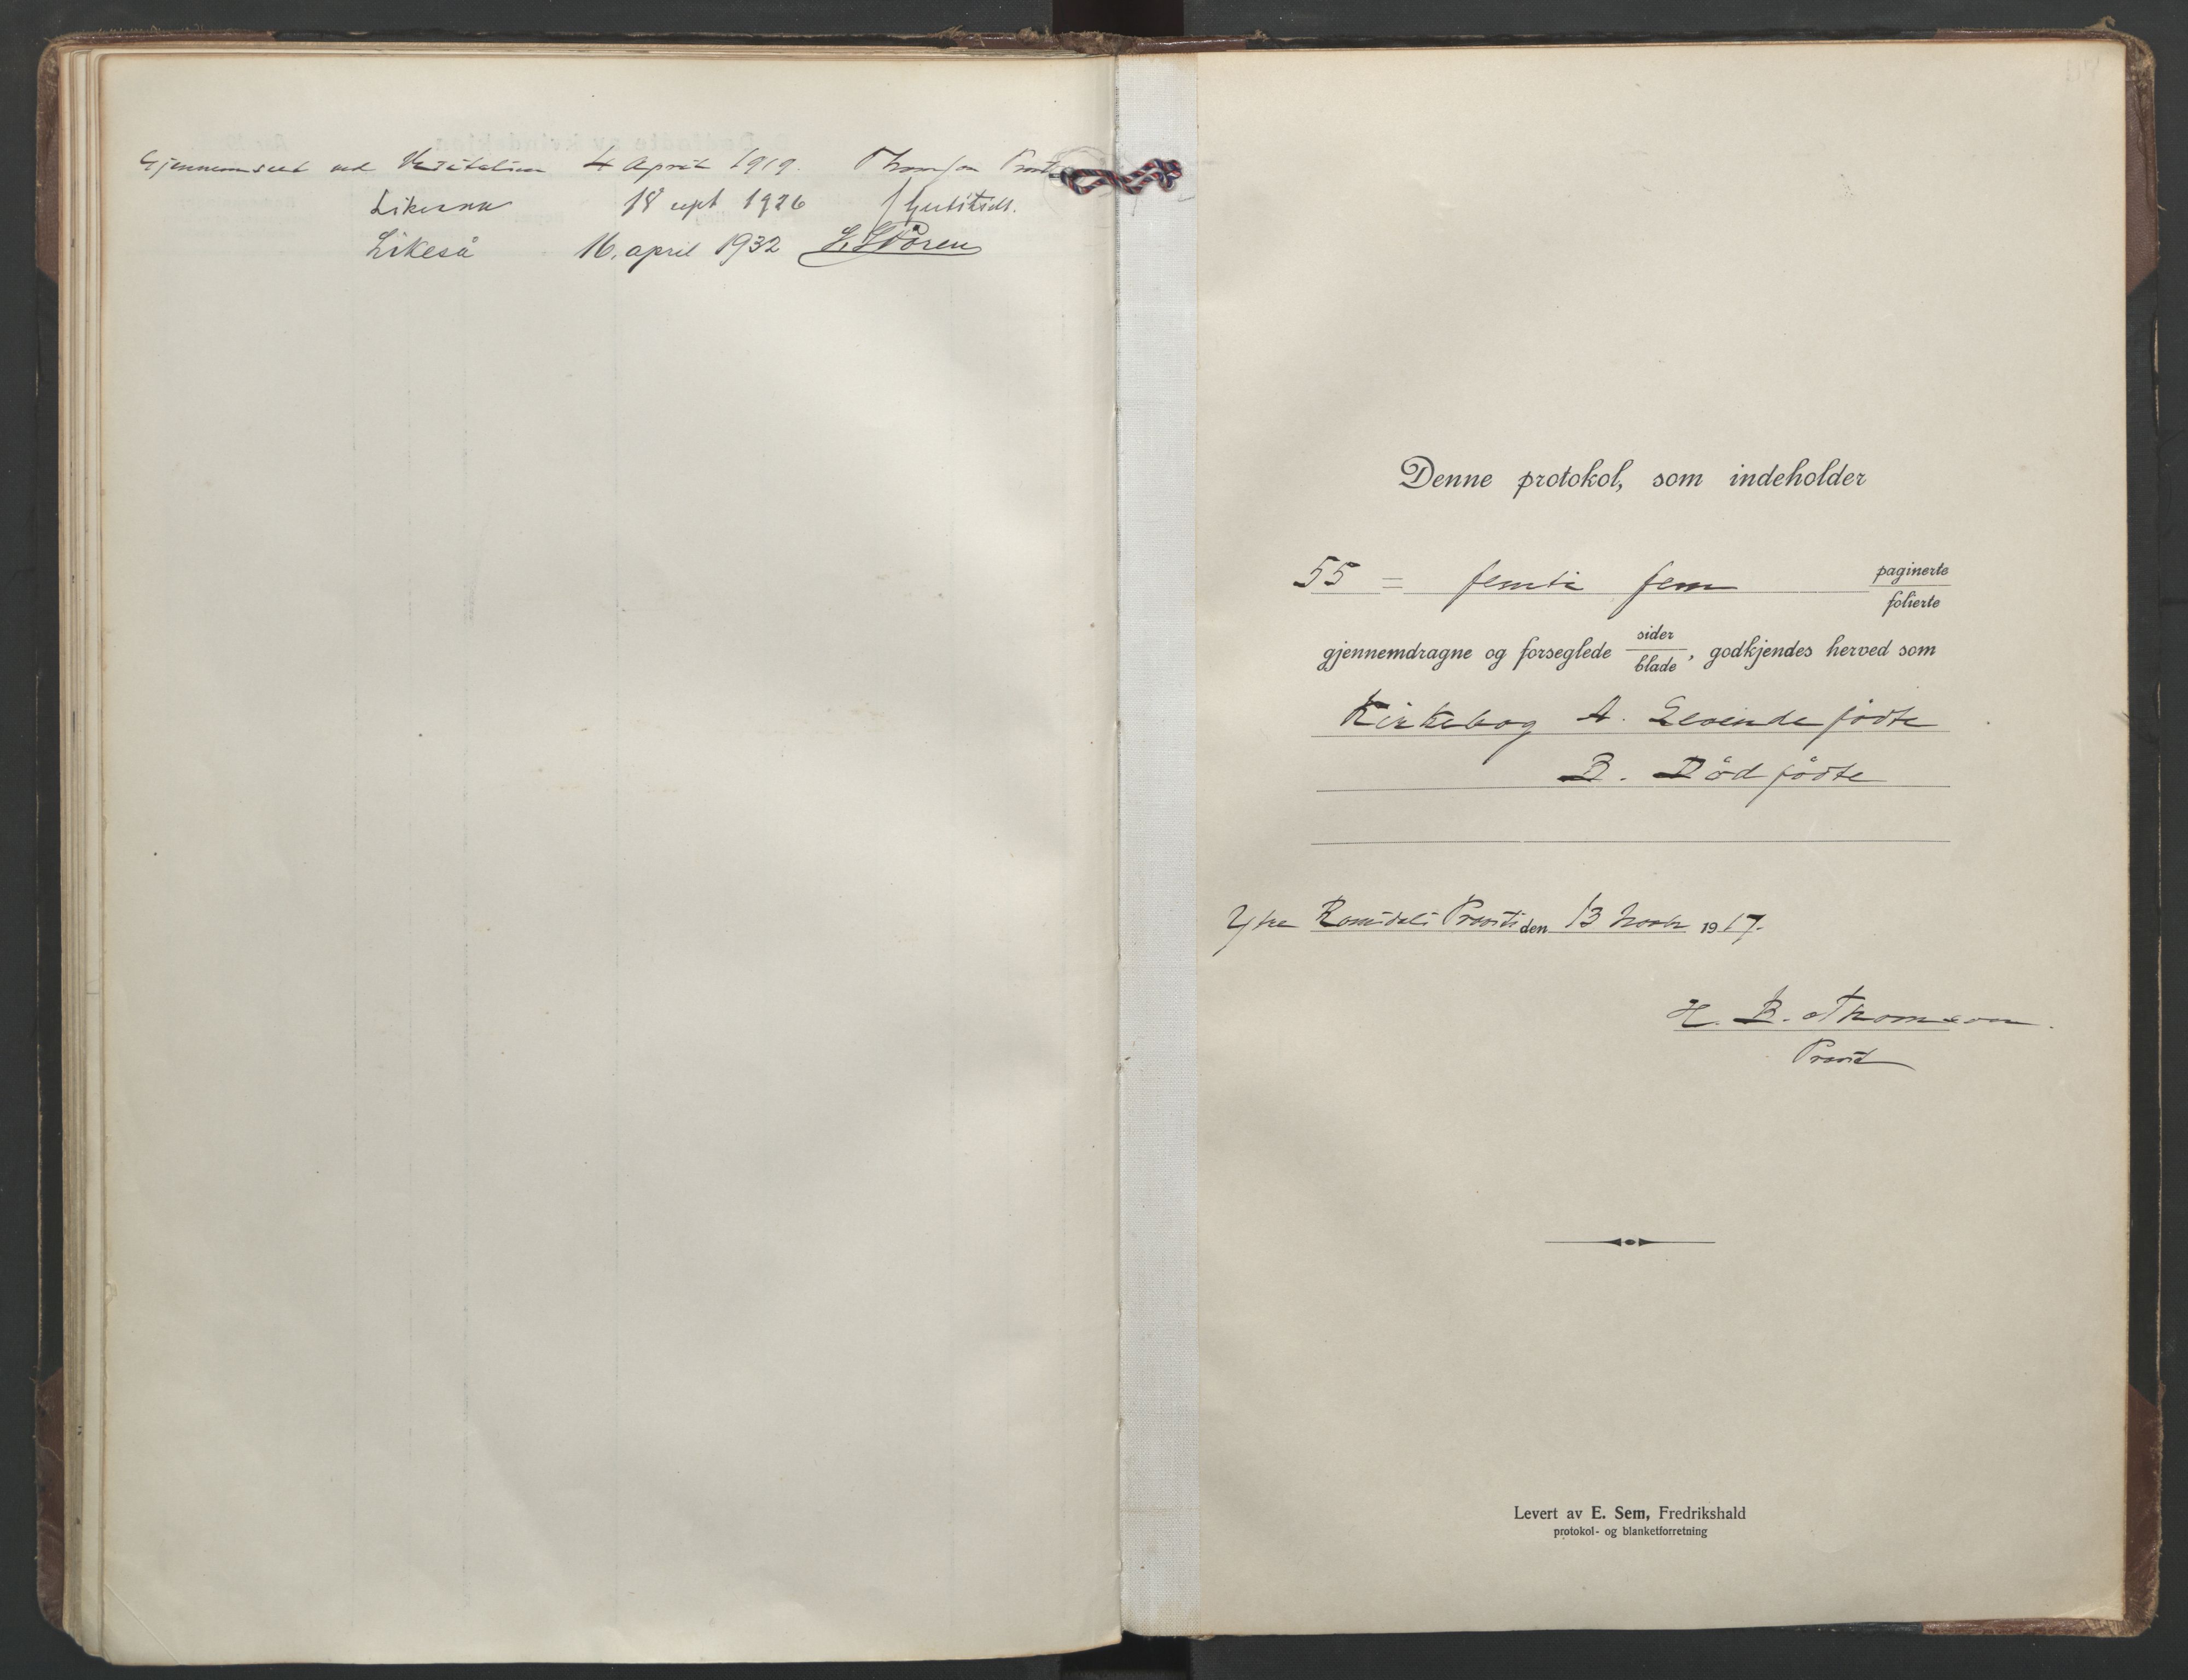 Gjennemseet ved Visitatien 4 April 1919. Thomson Provst
Likesaa 18 sept 1926
Likeså 16. april 1932 E. Støren
Denne protokol, som indeholder
55 = femti fem paginerte
folierte
gjennemdragne og forseglede sider
blade, godkjendes herved som
Kirkebog A. Levende fødte
B. Dødfødte
Ytre Romsdals Provsti den 13 Novbr 1917.
H. B. Thomson.
Provst
Levert av E. Sem, Fredrikshald
protokol- og blanketforretning